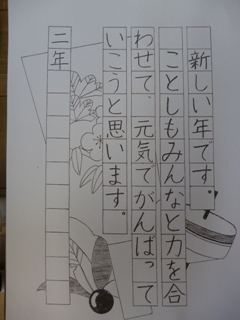 新しい年です。
ことしもみんなと力を合
わせて、元気でがんばって
いこうと思います。
二年